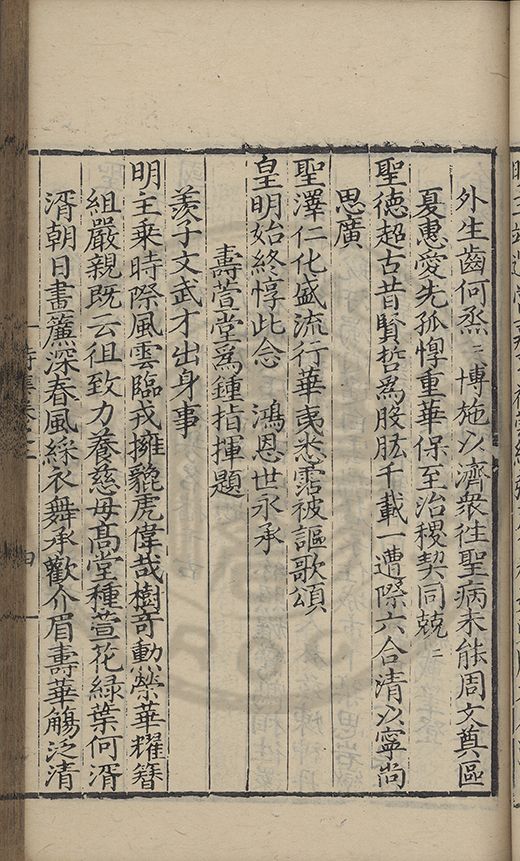 外生齒何烝〻博施以濟衆往聖病未能周文奠區
夏惠愛先孤惸重華保至治稷契同兢〻
聖德超古昔賢哲爲股肱千載一遭際六合清以寧尚
思廣
聖澤仁化盛流行華夷悉霑被謳歌頌
皇明始終惇此念　鴻恩世永承
壽萱堂爲鍾指揮題
羨子文武才出身事
明主乗時際風雲臨戎擁貔虎偉哉樹竒勳榮華耀簪
組嚴親既云徂致力養慈毋髙堂種萱花緑葉何湑
湑朝日畫簾深春風綵衣舞承歡介眉壽華觴泛清